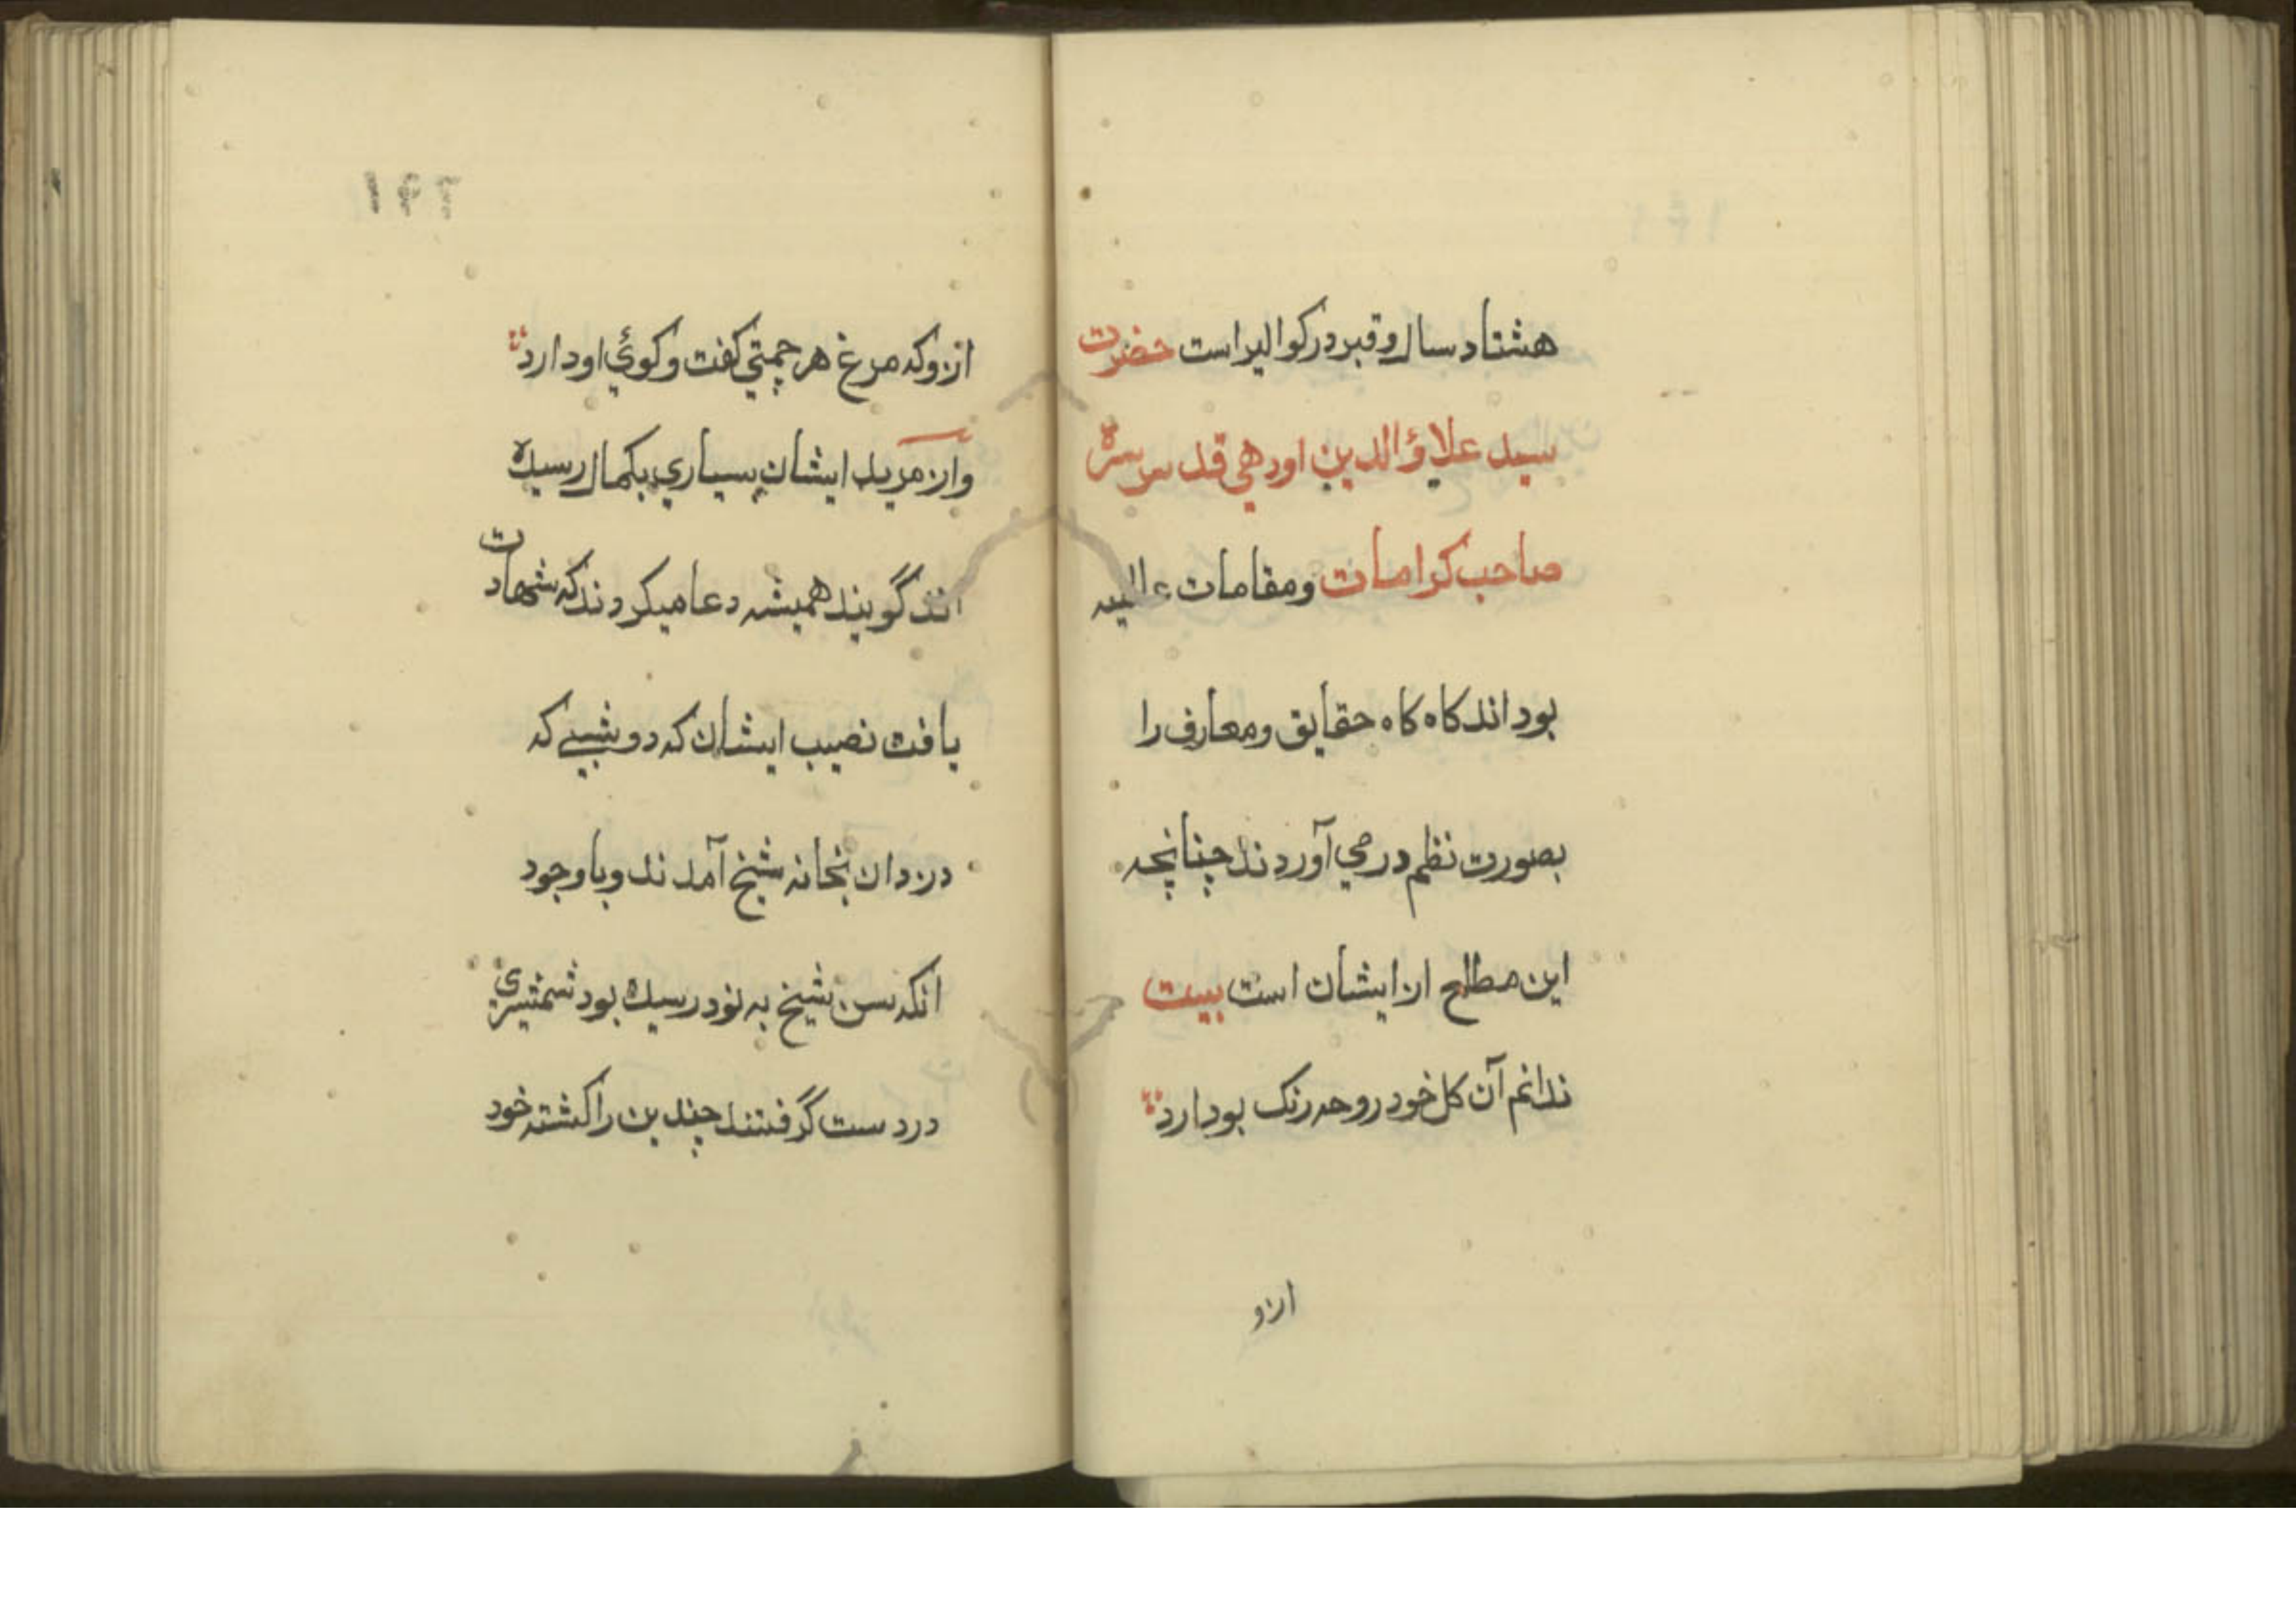 هشتاد سال و قبر در کوالیر است حضرت
سید علاؤالدین اودهی قدس سره
صاحب کرامات ومقامات عالیه
بود اند کاه کاه حقایق ومعارف را
بصورت نظم در می آوردند چنانچه
این مطلع از ایشان است بیت
ندانم آن کل خود رو چه رنک بو دارد
ازو
ازو که مرغ هر چمنی کفت وکوئی او دارد
واز مرید ایشان بسیاری بکمال رسیده
اند گویند همیشه دعا میکردند که شهادت
یافت نصیب ایشان که دو شبے که
دزدان بخانه شیخ آمدند وباوجود
انکه سن شیخ به نود رسیده بود شمشیری
در دست گرفتند چندین را کشته خود